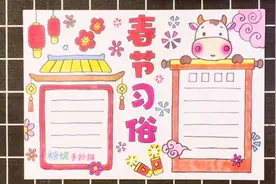 春节习俗
糖妮手抄报